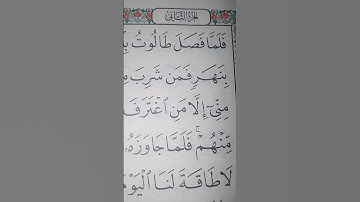 الجزء الثاني
فَلَمَّا فَصَلَ طَالُوتُ
بِنَهَرٍ فَمَن شَرِبَ
مِنِّيٓ إِلَّا مَنِ ٱغْتَرَفَ
مِّنْهُمْۚ فَلَمَّا جَاوَزَهُۥ
لَا طَاقَةَ لَنَا ٱلْيَوْمَ